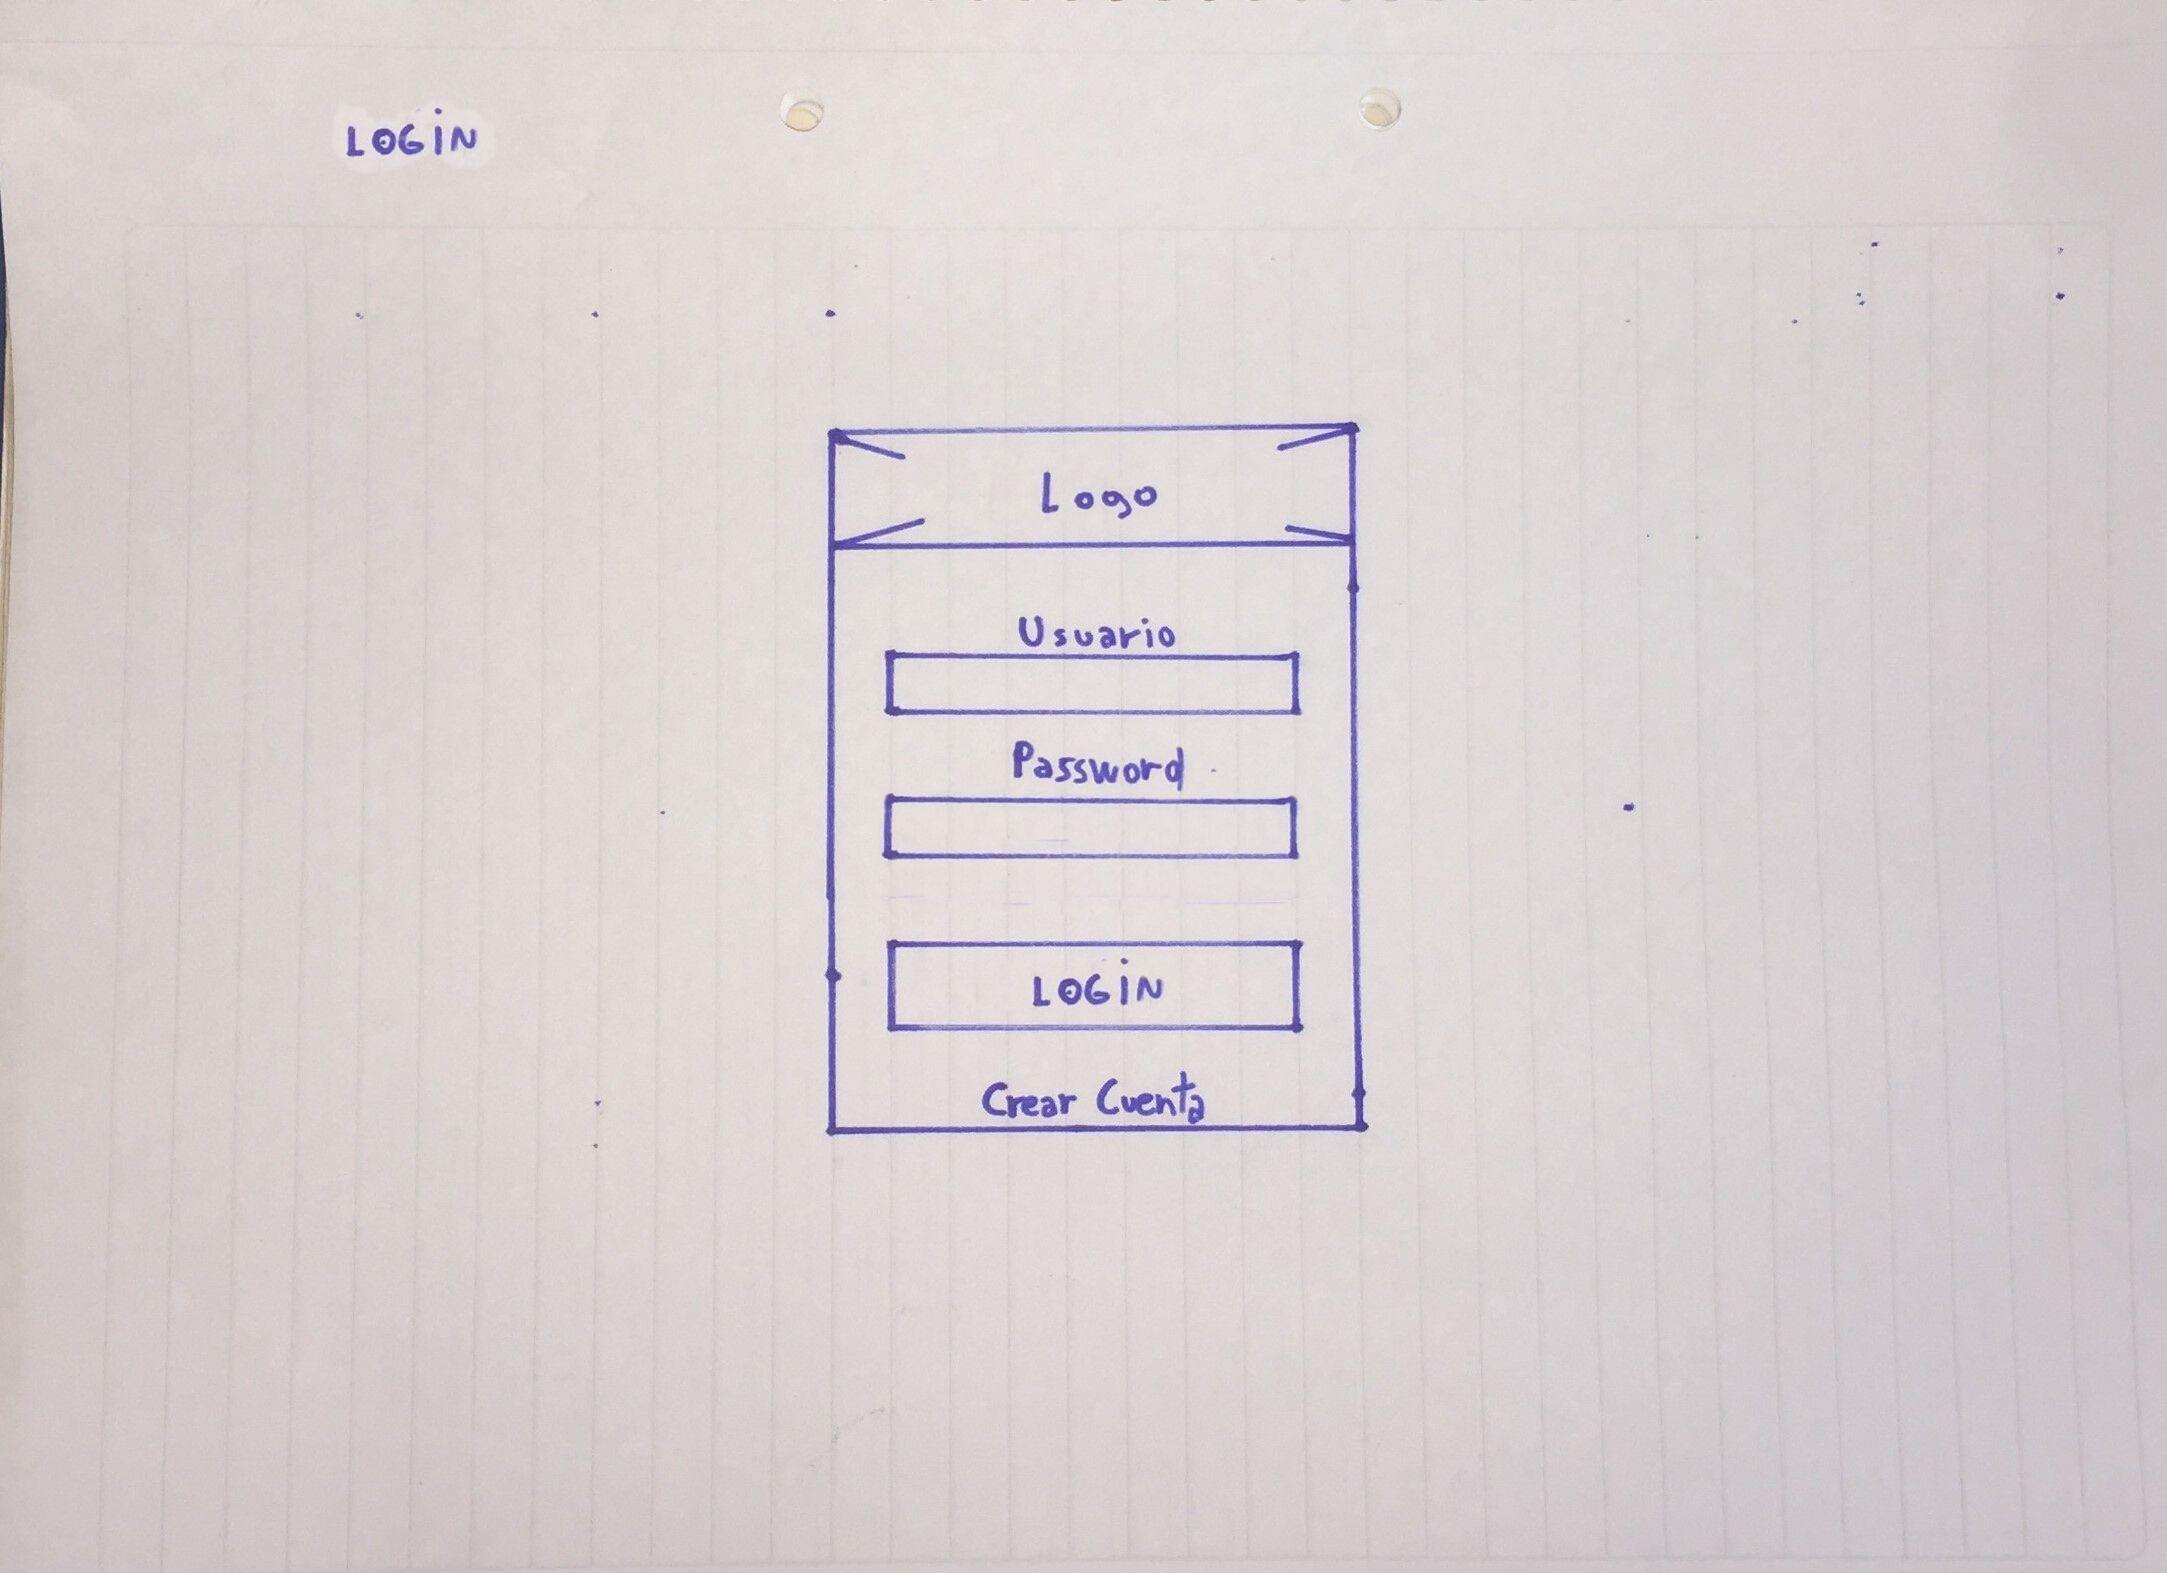 LOGIN
Logo
Usuario
Password
LOGIN
Crear Cuenta